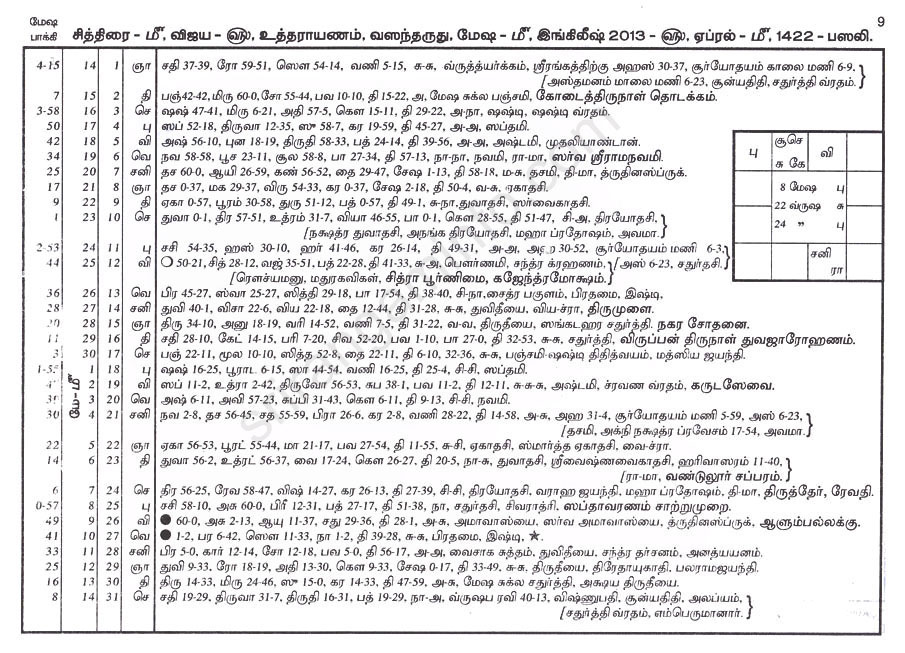 9
மேஷ
பாக்கி
சித்திரை - மீ, விஜய - ௵, உத்தராயணம், வஸந்தருது, மேஷ - மீ, இங்கிலீஷ் 2013 - ௵, ஏப்ரல் - மீ, 1422 - பஸலி.
4-15 14 1 ஞா சதி 37-39, ரோ 59-51, ஸௌ 54-14, வணி 5-15, சு-சு, வ்ருத்யர்க்கம், ஸ்ரீரங்கத்திற்கு அஹஸ் 30-37, சூர்யோதயம் காலை மணி 6-9,
[அஸ்தமனம் மாலை மணி 6-23, சூன்யதிதி, சதுர்த்தி வ்ரதம்.
7 15 2 தி பஞ் 42-42, மிரு 60-0, சோ 55-44, பவ 10-10, தி 15-22, அ, மேஷ சுக்ல பஞ்சமி, கோடைத்திருநாள் தொடக்கம்.
3-58 16 3 செ ஷஷ் 47-41, மிரு 6-21, அதி 57-5, கௌ 15-11, தி 29-22, அ-நா, ஷஷ்டி, ஷஷ்டி வ்ரதம்.
50 17 4 பு ஸப் 52-18, திருவா 12-35, ஸு 58-7, கர 19-59, தி 45-27, அ-அ, ஸப்தமி.
42 18 5 வி அஷ் 56-10, புன 18-19, திருதி 58-33, பத் 24-14, தி 39-56, அ-அ, அஷ்டமி, முதலியாண்டான்.
34 19 6 வெ நவ 58-58, பூச 23-11, சூல 58-8, பா 27-34, தி 57-13, நா-நா, நவமி, ரா-மா, ஸர்வ ஸ்ரீராமநவமி.
25 20 7 சனி தச 60-0, ஆயி 26-59, கண் 56-52, தை 29-47, சேஷ 1-13, தி 58-18, ம-சு, தசமி, தி-மா, த்ருதினஸ்ப்ருக்.
17 21 8 ஞா தச 0-37, மக 29-37, விரு 54-33, கர 0-37, சேஷ 2-18, தி 50-4, வ-சு, ஏகாதசி.
9 22 9 தி ஏகா 0-57, பூரம் 30-58, துரு 51-12, பத் 0-57, தி 49-1, சு-நா, துவாதசி, ஸர்வைகாதசி.
1 23 10 செ துவா 0-1, திர 57-51, உத்ரம் 31-7, வியா 46-55, பா 0-1, கௌ 28-55, தி 51-47, சி-அ, திரயோதசி,
[நக்ஷத்ர துவாதசி, அநங்க திரயோதசி, மஹா ப்ரதோஷம், அவமா.
2-53 24 11 பு சசி 54-35, ஹஸ் 30-10, ஹர் 41-46, கர 26-14, தி 49-31, அ-அ, அஹ 30-52, சூர்யோதயம் மணி 6-3,
[அஸ் 6-23, சதுர்தசி.
44 25 12 வி ○ 50-21, சித் 28-12, வஜ் 35-51, பத் 22-28, தி 41-33, சு-அ, பௌர்ணமி, சந்த்ர க்ரஹணம்,
[ரௌச்யமனு, மதுரகவிகள், சித்ரா பூர்ணிமை, கஜேந்த்ரமோக்ஷம்.
36 26 13 வெ பிர 45-27, ஸ்வா 25-27, ஸித்தி 29-18, பா 17-54, தி 38-40, சி-நா, சைத்ர பகுளம், பிரதமை, இஷ்டி,
28 27 14 சனி துவி 40-1, விசா 22-6, விய 22-18, தை 12-44, தி 31-28, சு-சு, துவிதீயை, விய-ச்ரா, திருமுளை.
20 28 15 ஞா திரு 34-10, அனு 18-19, வரி 14-52, வணி 7-5, தி 31-22, வ-வ, திருதீயை, ஸங்கடஹர சதுர்த்தி. நகர சோதனை.
11 29 16 தி சதி 28-10, கேட் 14-15, பரி 7-20, சிவ 52-20, பவ 1-10, பா 27-0, தி 32-53, சு-சு, சதுர்த்தி, விருப்பன் திருநாள் துவஜாரோஹணம்.
3 30 17 செ பஞ் 22-11, மூல 10-10, ஸித்த 52-8, தை 22-11, தி 6-10, 32-36, சு-சு, பஞ்சமி-ஷஷ்டி திதித்வயம், மத்ஸிய ஜயந்தி.
மே-மீ
1-55 1 18 பு ஷஷ் 16-25, பூராட 6-15, ஸா 44-54, வணி 16-25, தி 25-4, சி-சி, ஸப்தமி.
2 19 வி ஸப் 11-2, உத்ரா 2-42, திருவோ 56-53, சுப 38-1, பவ 11-2, தி 12-11, சு-சு-சு, அஷ்டமி, ச்ரவண வ்ரதம், கருடஸேவை.
39 3 20 வெ அஷ் 6-11, அவி 57-23, சுப்பி 31-43, கௌ 6-11, தி 9-13, சி-சி, நவமி.
30 4 21 சனி நவ 2-8, தச 56-45, சத 55-59, பிரா 26-6, கர 2-8, வணி 28-22, தி 14-58, அ-சு, அஹ 31-4, சூர்யோதயம் மணி 5-59, அஸ் 6-23,
[தசமி, அக்நி நக்ஷத்ர ப்ரவேசம் 17-54, அவமா.
22 5 22 ஞா ஏகா 56-53, பூரட் 55-44, மா 21-17, பவ 27-54, தி 11-55, சு-சி, ஏகாதசி, ஸ்மார்த்த ஏகாதசி, வை-ச்ரா.
14 6 23 தி துவா 56-2, உத்ரட் 56-37, வை 17-24, கௌ 26-27, தி 20-5, நா-சு, துவாதசி, ஸ்ரீவைஷ்ணவைகாதசி, ஹரிவாஸரம் 11-40,
[ரா-மா, வண்டுலூர் சப்பரம்.
6 7 24 செ திர 56-25, ரேவ 58-47, விஷ் 14-27, கர 26-13, தி 27-39, சி-சி, திரயோதசி, வராஹ ஜயந்தி, மஹா ப்ரதோஷம், தி-மா, திருத்தேர், ரேவதி.
0-57 8 25 பு சசி 58-10, அசு 60-0, பிரீ 12-31, பத் 27-17, தி 51-38, நா, சதுர்தசி, சிவராத்ரி. ஸப்தாவரணம் சாற்றுமுறை.
49 9 26 வி ● 60-0, அசு 2-13, ஆயு 11-37, சது 29-36, தி 28-1, அ-சு, அமாவாஸ்யை, ஸர்வ அமாவாஸ்யை, த்ருதினஸ்ப்ருக், ஆளும்பல்லக்கு.
41 10 27 வெ ● 1-2, பர 6-42, ஸௌ 11-33, நா 1-2, தி 39-28, சு-சு, பிரதமை, இஷ்டி, ★.
33 11 28 சனி பிர 5-0, கார் 12-14, சோ 12-18, பவ 5-0, தி 56-17, அ-அ, வைசாக சுத்தம், துவிதீயை, சந்த்ர தர்சனம், அனத்யயனம்.
25 12 29 ஞா துவி 9-33, ரோ 18-19, அதி 13-30, கௌ 9-33, சேஷ 0-17, தி 33-49, சு-சு, திருதீயை, திரேதாயுகாதி, பலராமஜயந்தி.
16 13 30 தி திரு 14-33, மிரு 24-46, ஸு 15-0, கர 14-33, தி 47-59, அ-சு, மேஷ சுக்ல சதுர்த்தி, அக்ஷய திருதீயை.
8 14 31 செ சதி 19-29, திருவா 31-7, திருதி 16-31, பத் 19-29, நா-அ, வ்ருஷப ரவி 40-13, விஷ்ணுபதி, சூன்யதிதி, அலப்யம்,
[சதுர்த்தி வ்ரதம், எம்பெருமானார்.
பு
சூசெ
சு கே
வி
8 மேஷ பு
22 வ்ருஷ சு
24 " பு
சனி
ரா